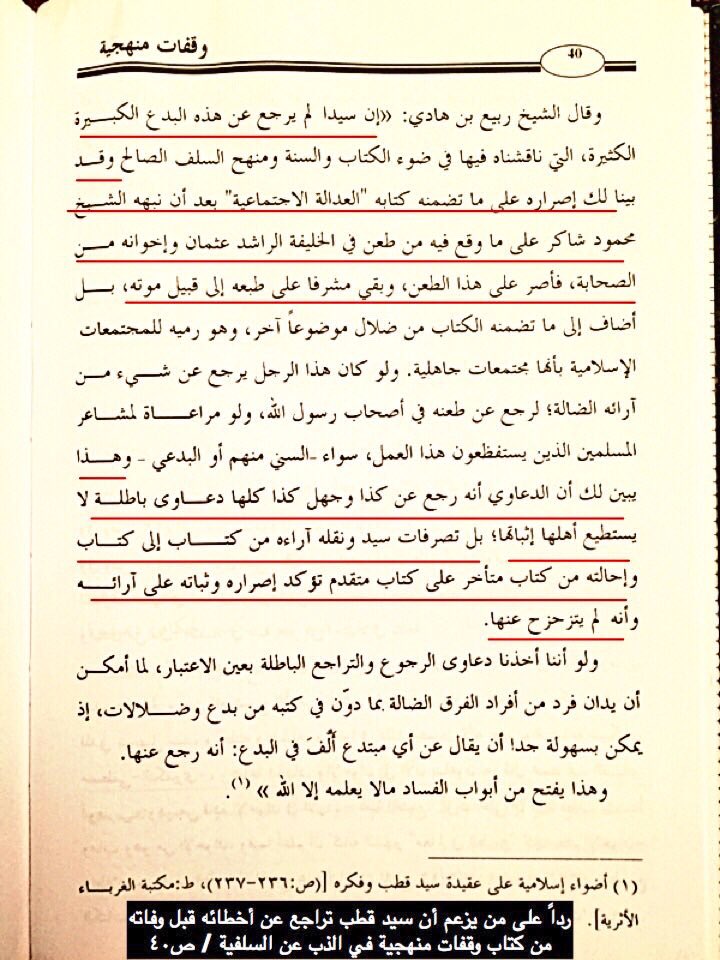 وقفات منهجية
40
وقال الشيخ ربيع بن هادي: «إن سيدا لم يرجع عن هذه البدع الكبيرة
الكثيرة، التي ناقشناه فيها في ضوء الكتاب والسنة ومنهج السلف الصالح وقد
بينا لك إصراره على ما تضمنه كتابه "العدالة الاجتماعية" بعد أن نبهه الشيخ
محمود شاكر على ما وقع فيه من طعن في الخليفة الراشد عثمان وإخوانه من
الصحابة، فأصر على هذا الطعن، وبقي مشرفا على طبعه إلى قبيل موته، بل
أضاف إلى ما تضمنه الكتاب من ضلال موضوعاً آخر، وهو رميه للمجتمعات
الإسلامية بأنها مجتمعات جاهلية. ولو كان هذا الرجل يرجع عن شيء من
آرائه الضالة؛ لرجع عن طعنه في أصحاب رسول الله، ولو مراعاة لمشاعر
المسلمين الذين يستفظعون هذا العمل، سواء -السني منهم أو البدعي - وهذا
يبين لك أن الدعاوي أنه رجع عن كذا وجهل كذا كلها دعاوى باطلة لا
يستطيع أهلها إثباتها؛ بل تصرفات سيد ونقله آراءه من كتاب إلى كتاب
وإحالته من كتاب متأخر على كتاب متقدم تؤكد إصراره وثباته على آرائه
وأنه لم يتزحزح عنها.
ولو أننا أخذنا دعاوى الرجوع والتراجع الباطلة بعين الاعتبار، لما أمكن
أن يدان فرد من أفراد الفرق الضالة بما دوّن في كتبه من بدع وضلالات، إذ
يمكن بسهولة جدا! أن يقال عن أي مبتدع أَلَّفَ في البدع: أنه رجع عنها.
وهذا يفتح من أبواب الفساد مالا يعلمه إلا الله » (١).
(١) أضواء إسلامية على عقيدة سيد قطب وفكره [(ص:٢٣٦-٢٣٧)، ط:مكتبة الغرباء
الأثرية].
رداً على من يزعم أن سيد قطب تراجع عن أخطائه قبل وفاته
من كتاب وقفات منهجية في الذب عن السلفية / ص٤٠